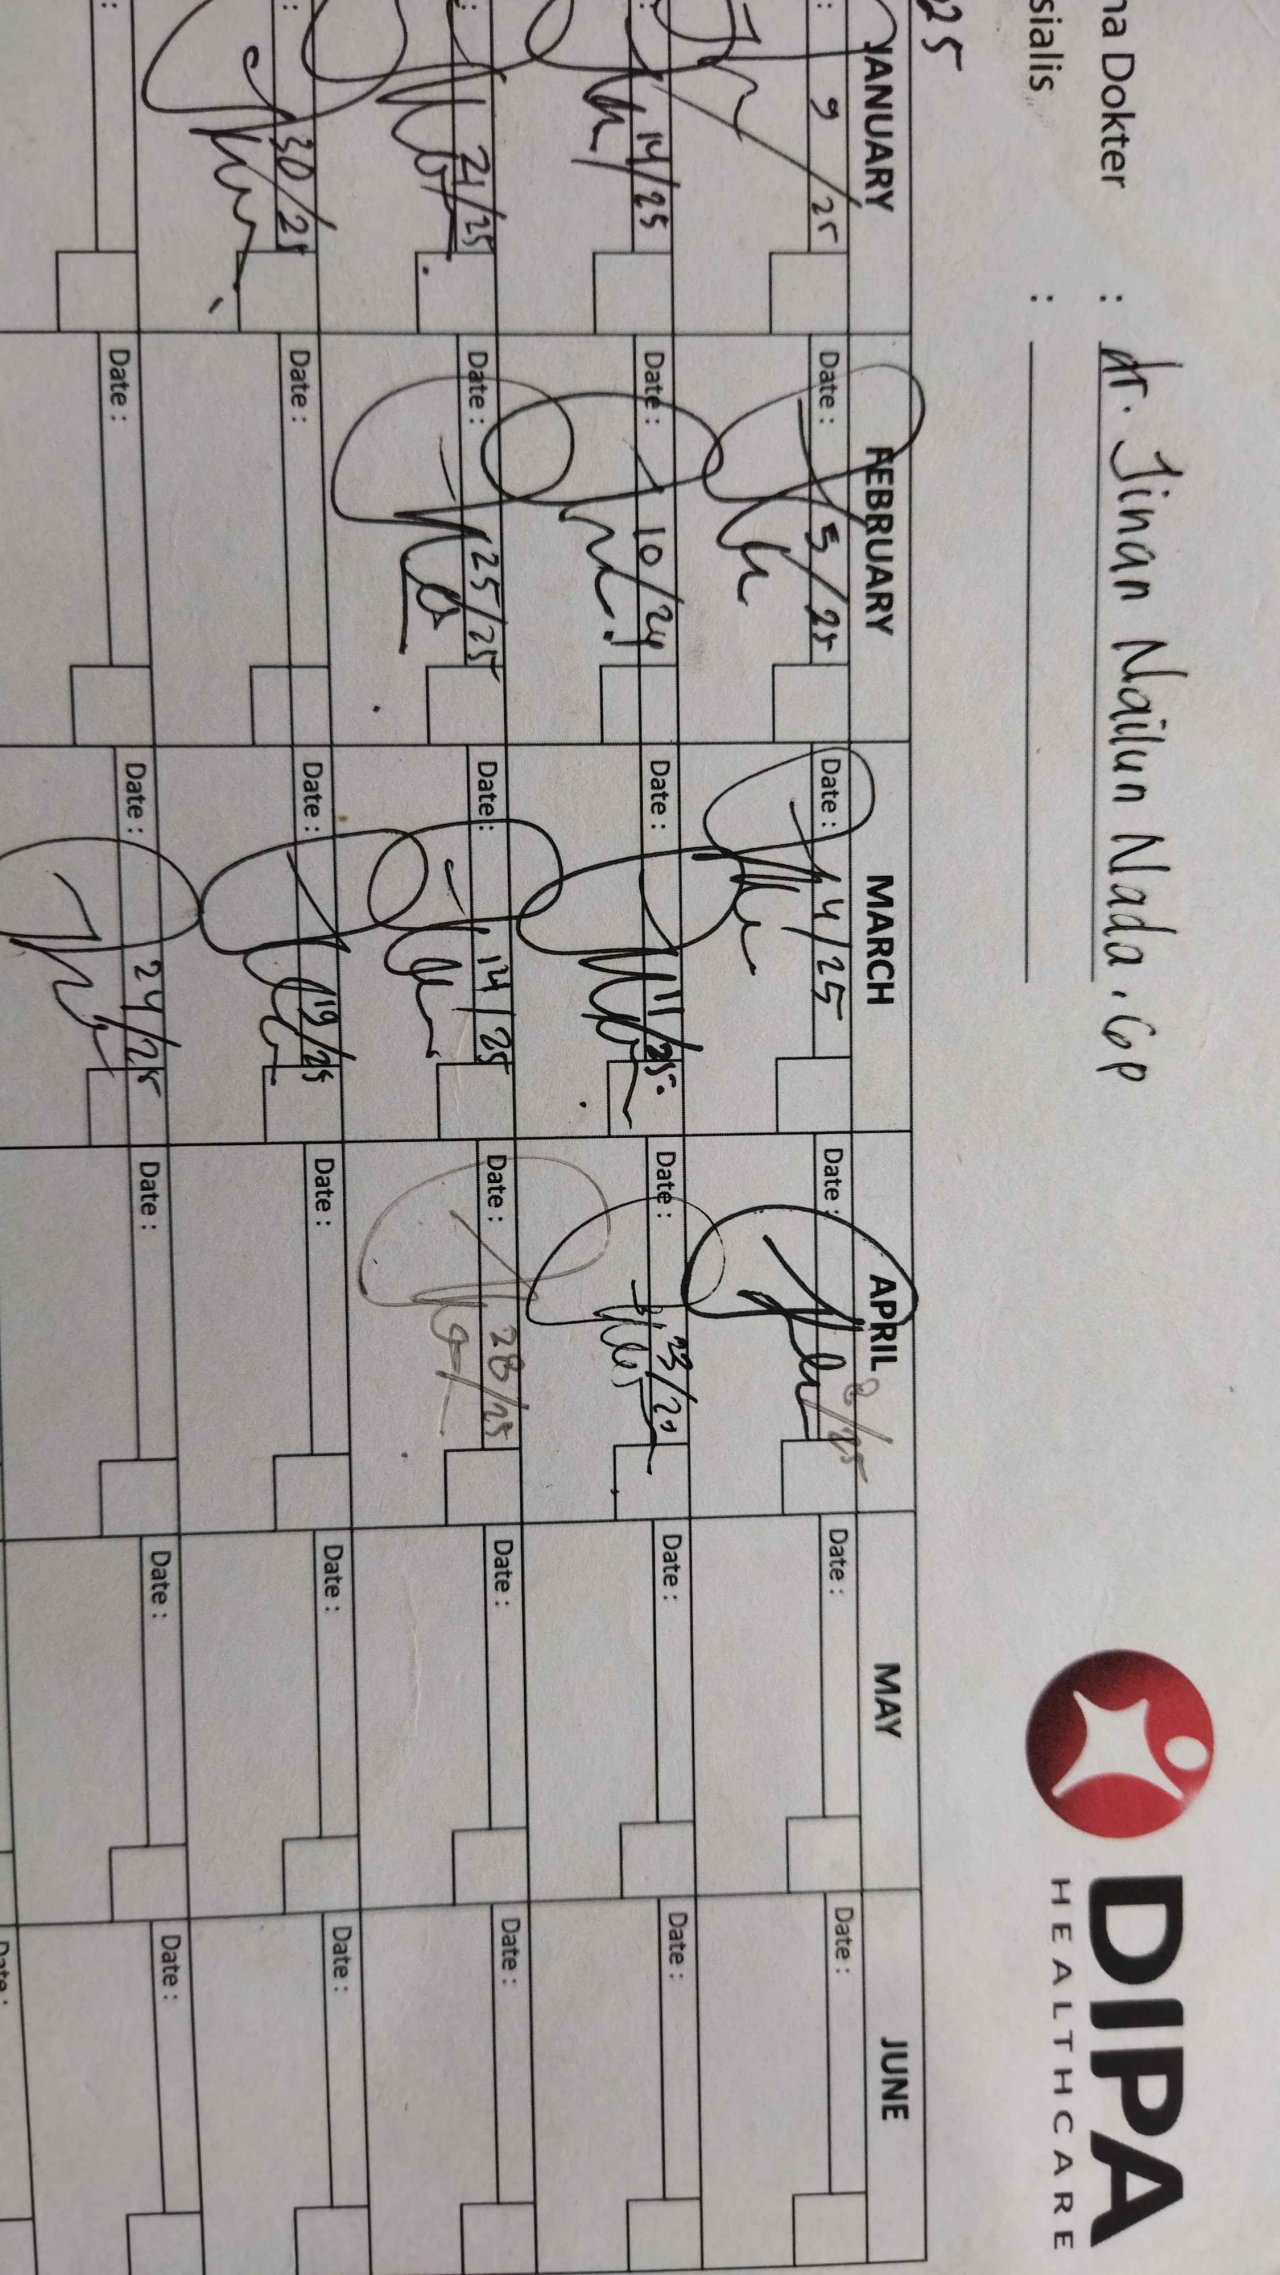 na Dokter : dr. Jinan Nailun Nada . Gp
sialis :
DIPA
HEALTHCARE
25
JANUARY FEBRUARY MARCH APRIL MAY JUNE
: 9/25 Date : 5/25 Date : 4/25 Date : 8/25 Date : Date :
: 14/25 Date : 10/24 Date : 11/25. Date : 23/25 Date : Date :
: 21/25 Date : 25/25 Date : 14/25 Date : 28/25 Date : Date :
: 30/25 Date : Date : 19/25 Date : Date : Date :
: Date : Date : 24/25 Date : Date : Date :
Date :